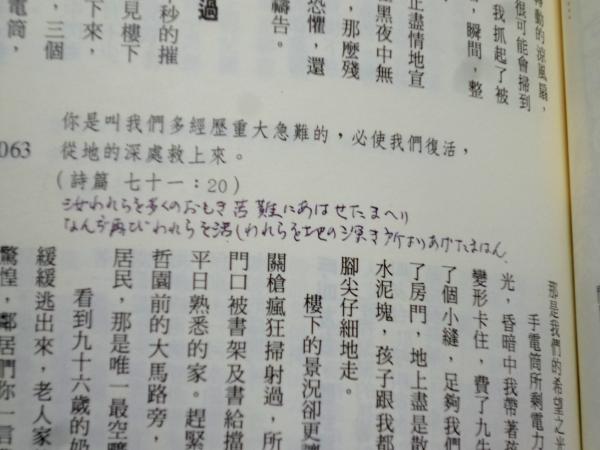 動的涼風扇，
很可能會掃到
我抓起了被
，瞬間，整
正盡情地宣
黑夜中無
，那麼殘
恐懼，還
禱告。
過
秒的摧
見樓下
下來，
，三個
電筒，
你是叫我們多經歷重大急難的，必使我們復活，
從地的深處救上來。
（詩篇 七十一：20）
063
汝われらを多くのおもき苦難にあはせたまへり
なんぢ再びわれらを活しわれらを地の深き所よりあげたまはん
那是我們的希望之光
手電筒所剩電力
光，昏暗中我帶著孩
變形卡住，費了九牛
了個小縫，足夠我們
了房門，地上盡是散
水泥塊，孩子跟我都
腳尖仔細地走。
樓下的景況卻更讓
關槍瘋狂掃射過，所
門口被書架及書給擋
平日熟悉的家。趕緊
哲園前的大馬路旁，
居民，那是唯一最空曠
看到九十六歲的奶
緩緩逃出來，老人家
驚惶，鄰居們你一言